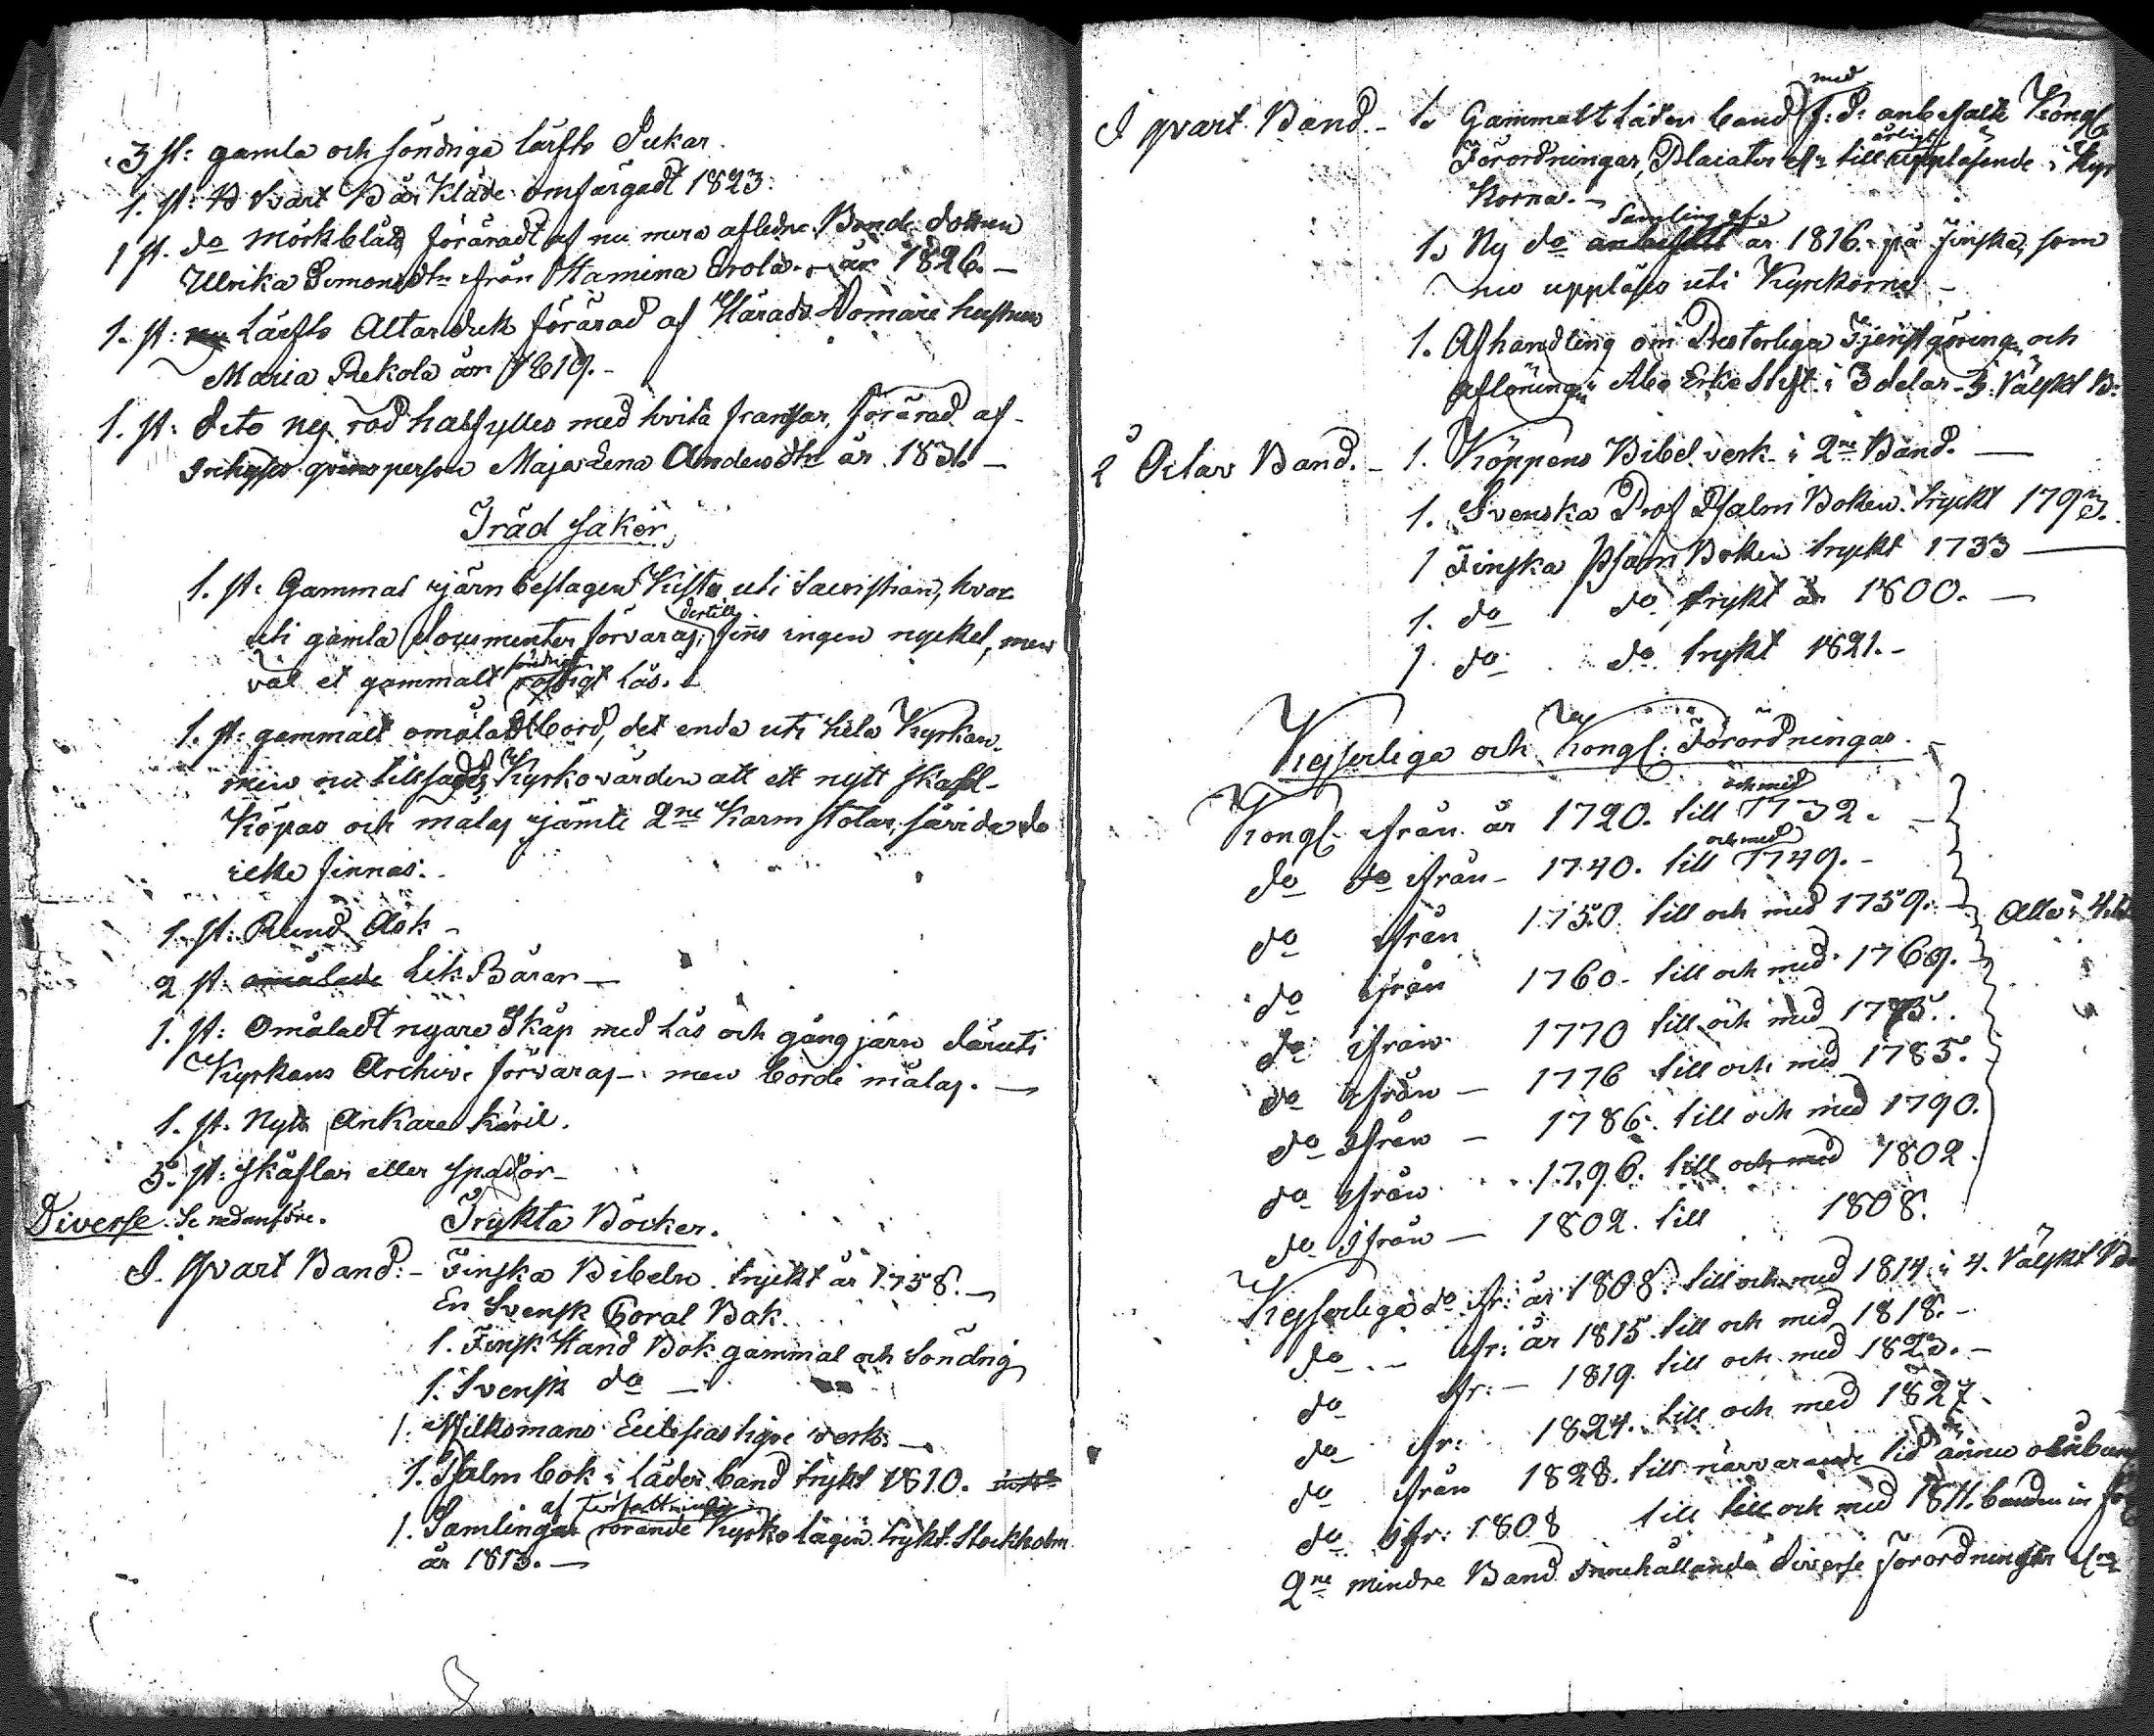 3 st: gamla och söndriga lärfts Dukar.
1. st: Svart Bår Kläde omfärgadt 1823.
1 st. do mörkblått föräradt af nu mera aflidne Bonde dottren
Ulrika Simonsdtr ifrån Hamina Erola år 1826. —
1. st: Lärfts Altarduk förärad af Härads Domare hustrun
Maria Rekola år 1819. -
1. st: dito ny röd halfylles med hvita fransar, förärad af
Inhyses qvinsperson Maja Lena Andersdtr år 1831. —
Träd saker
1. st: Gammal järnbeslagen Kista uti Sacristian, hvar
uti gamla documenter förvaras, dertill fins ingen nyckel, men
väl et gammalt söndrigt Lås. -
1. st: gammalt omåladt bord, det enda uti hela Kyrkan.
men nu tillsades Kyrkovärden att ett nytt skall
Köpas och målas jämte 2ne Karmstolar, sårida do
icke finnas.
1. st: Rund Ask -
2 st: omålade Lik Bårar —
1. st: Omåladt nyare Skåp med Lås och gångjärn däruti
Kyrkans Archive förvaras - men borde målas. —
1. st. Nytt Ankare käril.
3. st: skåflar eller spador -
Diverse. Se nedanföre. Trykta Böcker.
I Qvart Band: - Finska Bibeln tryckt år 1758. —
En Svensk Coral Bok.
1. Finsk Hand Bok gammal och Söndrig
1. Svensk do —
1. Wilksmans Ecclesiastique verk. —
1. Psalm bok i läder band trykt 1810.
1. Samlingar af författningar rörande Kyrko lagen trykt Stockholm
år 1813. —
I qvart Band. - 1. Gammalt Läder band med f: d: anbefalte Kongl
Förordningar, Placater etc till årligt uppläsande i Kyr
korna. -
1. Ny do Samling af år 1816. på Finska, som
nu uppläses uti Kyrkorna -
1. Afhandling om Presterliga Tjenstgöring och
aflöning i Åbo Erke Stift i 3 delar - 3. Välskt B:
Octav Band. - 1. Köppens Bibelverk i 2ne Band. —
1. Svenska Prof Psalm Boken tryckt 1793.
1 Finska Psalm Boken tryckt 1733 —
1. do do trykt år 1800. —
1. do do trykt 1821. -
Kejserliga och Kongl: Förordningar.
Kongl. ifrån år 1720. till och med 1732.
do do ifrån - 1740. till och med 1749. -
do ifrån 1750 till och med 1759. - Alla i 4.
do ifrån 1760 - till och med 1769.
do ifrån 1770 till och med 1775.
do ifrån — 1776 till och med 1785.
do ifrån — 1786. till och med 1790.
do ifrån 1796. till och med 1802.
do ifrån — 1802. till 1808.
Kejserliga do ifr: år 1808. till och med 1814 i 4. Välskt
do - ifr: år 1815 till och med 1818. -
do ifr: - 1819. till och med 1823. -
do ifr: 1824. till och med 1827 -
do ifrån 1828. till närvarande tid ännu
do ifr: 1808 till och med 1811. banden in
2ne mindre Band innehållande diverse Förordningar